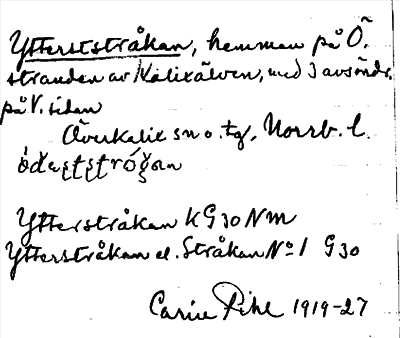 Ytterststråkan, hemman på Ö.
stranden av Kalixälven, med 3 avsöndr.
på V. sidan
Överkalix sn o. tg, Norrb. l.
Ytterstråkan KG30NM
Ytterstråkan el. Stråkan No 1 G30
Carin Pihl 1919-27